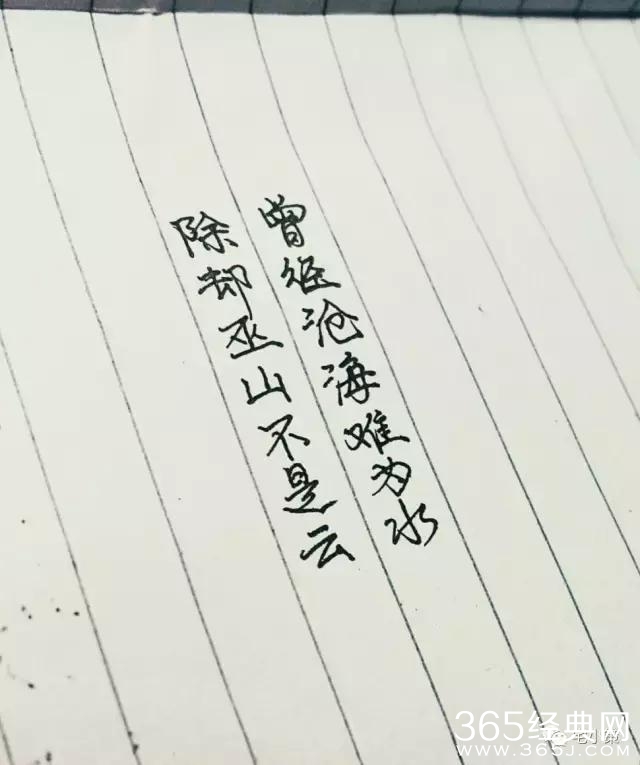 曾经沧海难为水
除却巫山不是云
365经典网
www.365J.com